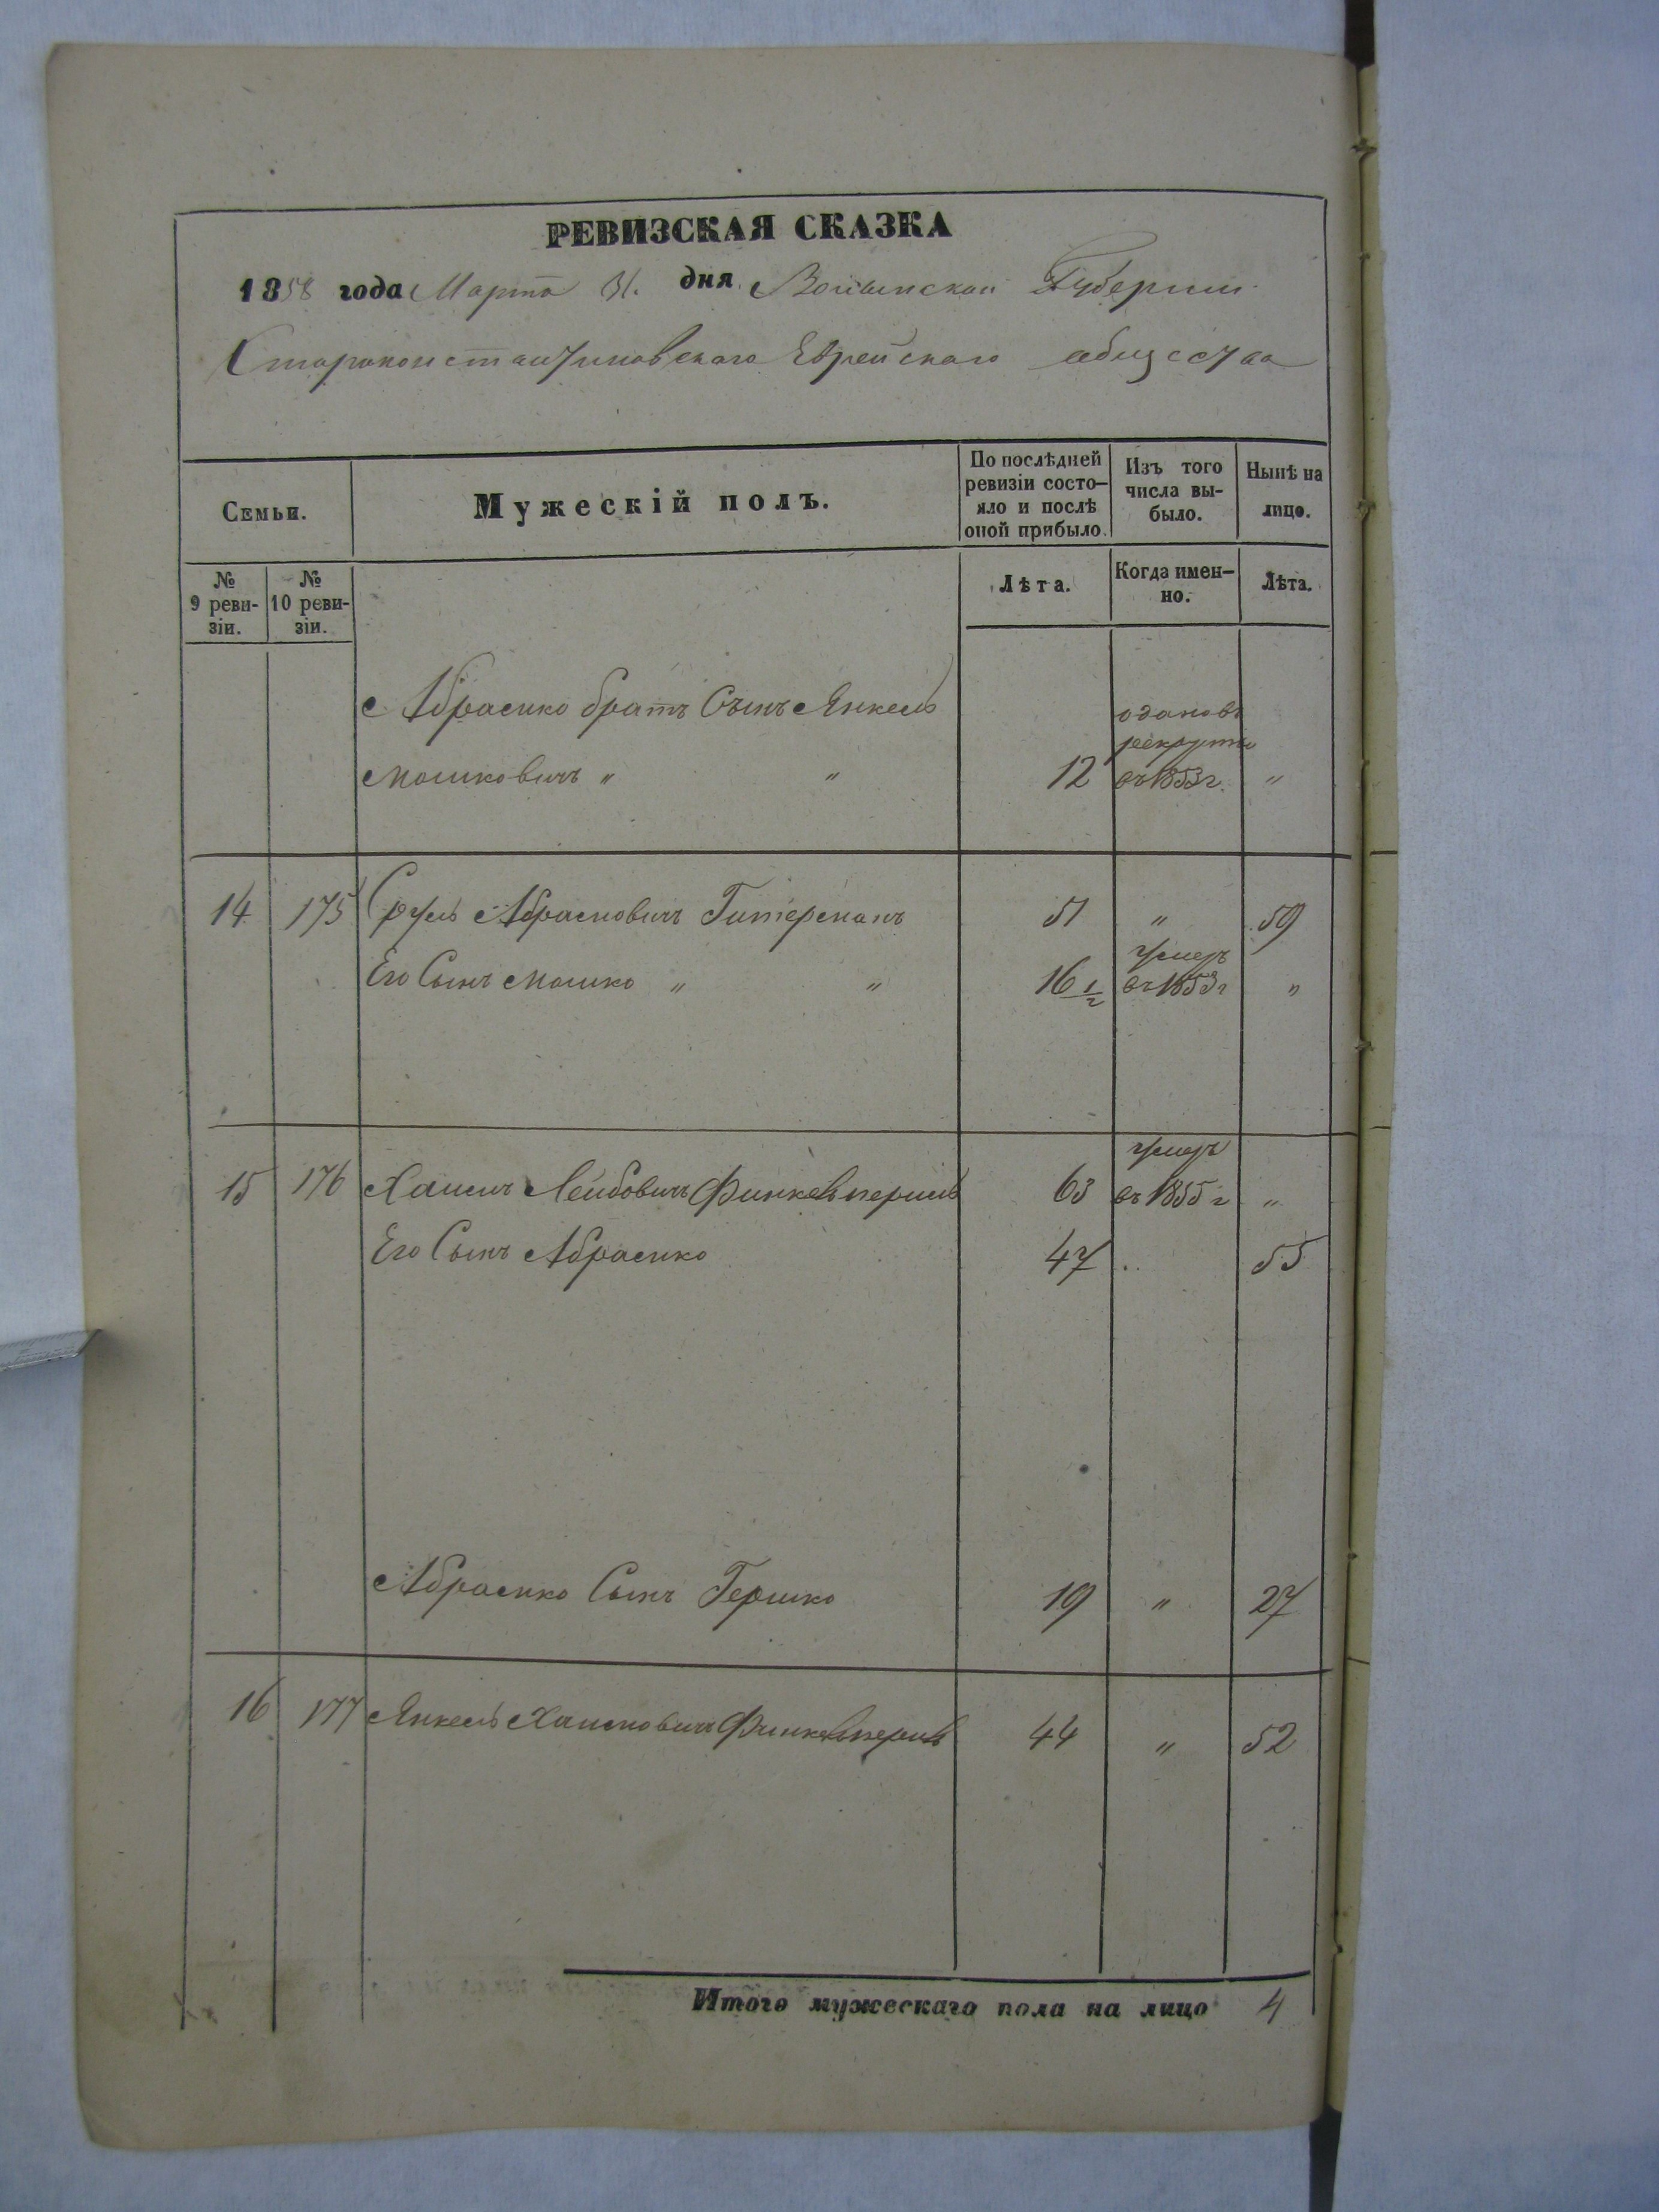 РЕВИЗСКАЯ СКАЗКА
1858 года Марта 31. дня Волынской Губернии
Староконстантиновскаго Еврейскаго общества
Семьи.
Мужескій полъ.
По послѣдней ревизіи состо-
яло и послѣ оной прибыло.
Изъ того числа вы-
было.
Нынѣ на лицо.
№ 9 реви-
зіи.
№ 10 реви-
зіи.
Лѣта.
Когда имен-
но.
Лѣта.
Абрамко братъ Сынъ Янкель
рекруты
Мошковичъ " " 12 въ 1853 г. "
14 175 Срулъ Абрамовичъ Гитерманъ 51 " 59
умеръ
Его Сынъ Мошко " " 16 1/2 въ 1853 г "
умеръ
15 176 Хаимъ Лейбовичъ Финкельперль 63 въ 1855 г "
Его Сынъ Абрамко 47 .. 55
Абрамко Сынъ Гершко 19 " 27
16 177 Янкель Хаимовичъ Финкельперль 44 " 52
Итого мужескаго пола на лицо 4